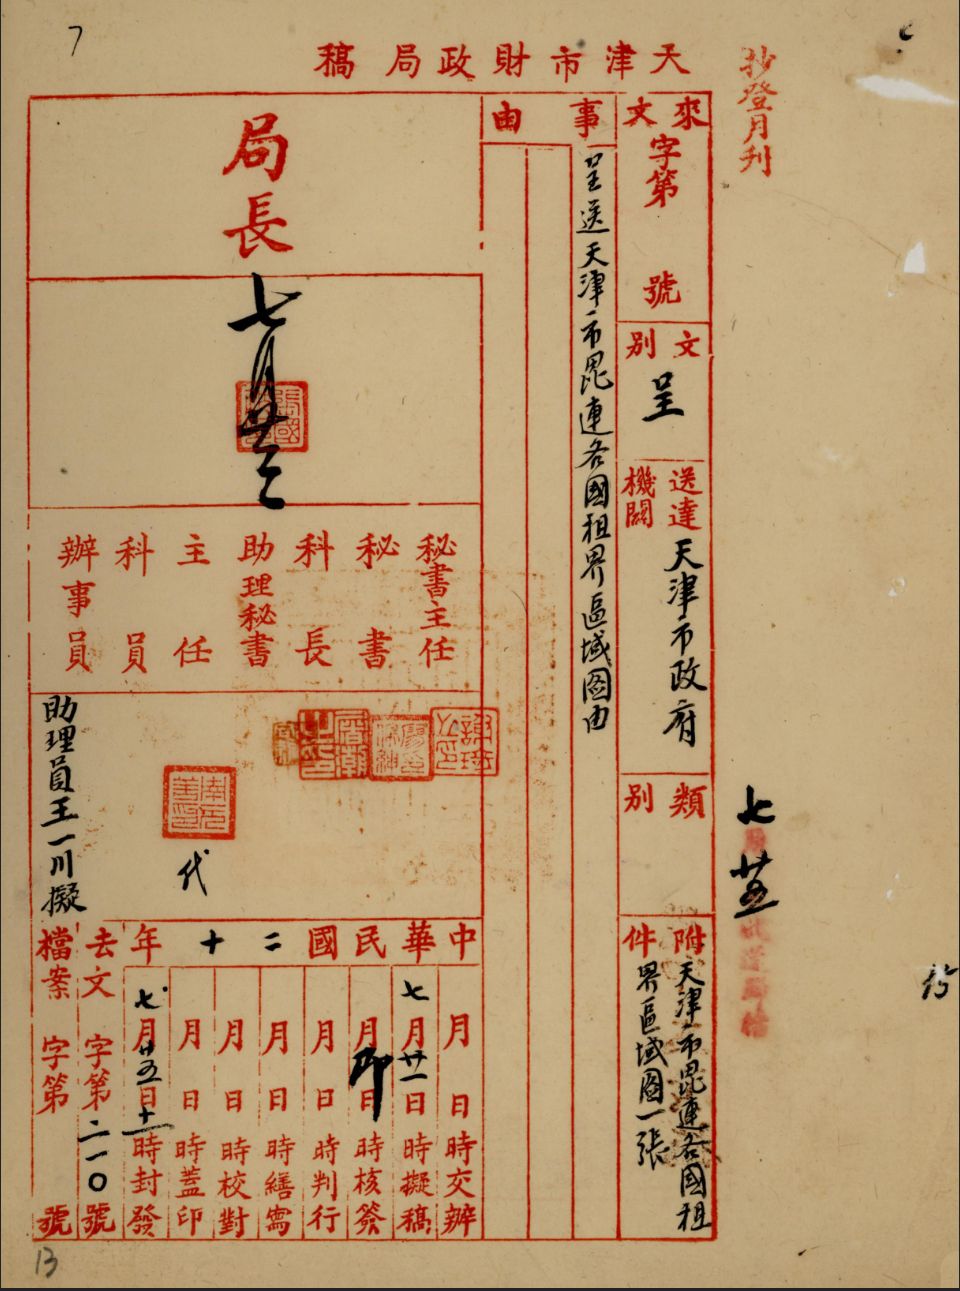 7
天津市財政局稿
抄登月刊
來文
字第　號
文別
呈
送達機關
天津市政府
類別
附件
天津市毘連各國租
界區域圖一張
事由
呈送天津市毘連各國租界區域圖由
局長
七月廿三
秘書主任
秘書
科長
助理秘書
主任
科員
辦事員
代
助理員王一川擬
中華民國二十年
月　日　時交辦
七月廿一日　時擬稿
月　日　時核簽
印
月　日　時判行
月　日　時繕寫
月　日　時校對
月　日　時蓋印
七月廿五日十一時封發
去文　字第二一〇號
檔案　字第　號
七
廿五
13